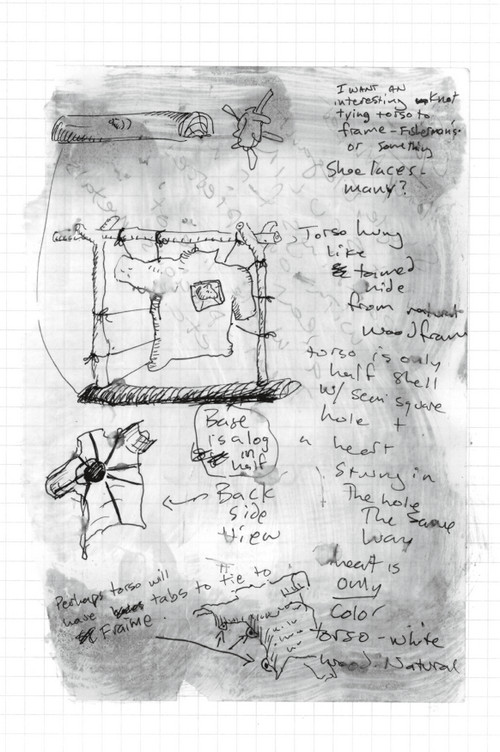 I WANT AN
interesting knot
tying torso to
frame - Fishermans
or something
Shoe laces -
many?
Torso hung
like
tanned
hide
from natural
wood frame
torso is only
half shell
w/ semi square
hole +
a heart
Strung in
The hole
The Same
Way
heart is
only
Color
torso - white
wood - Natural
Base
is a log
in
half
Back
Side
View
Perhaps torso will
have tabs to tie to
Fraime